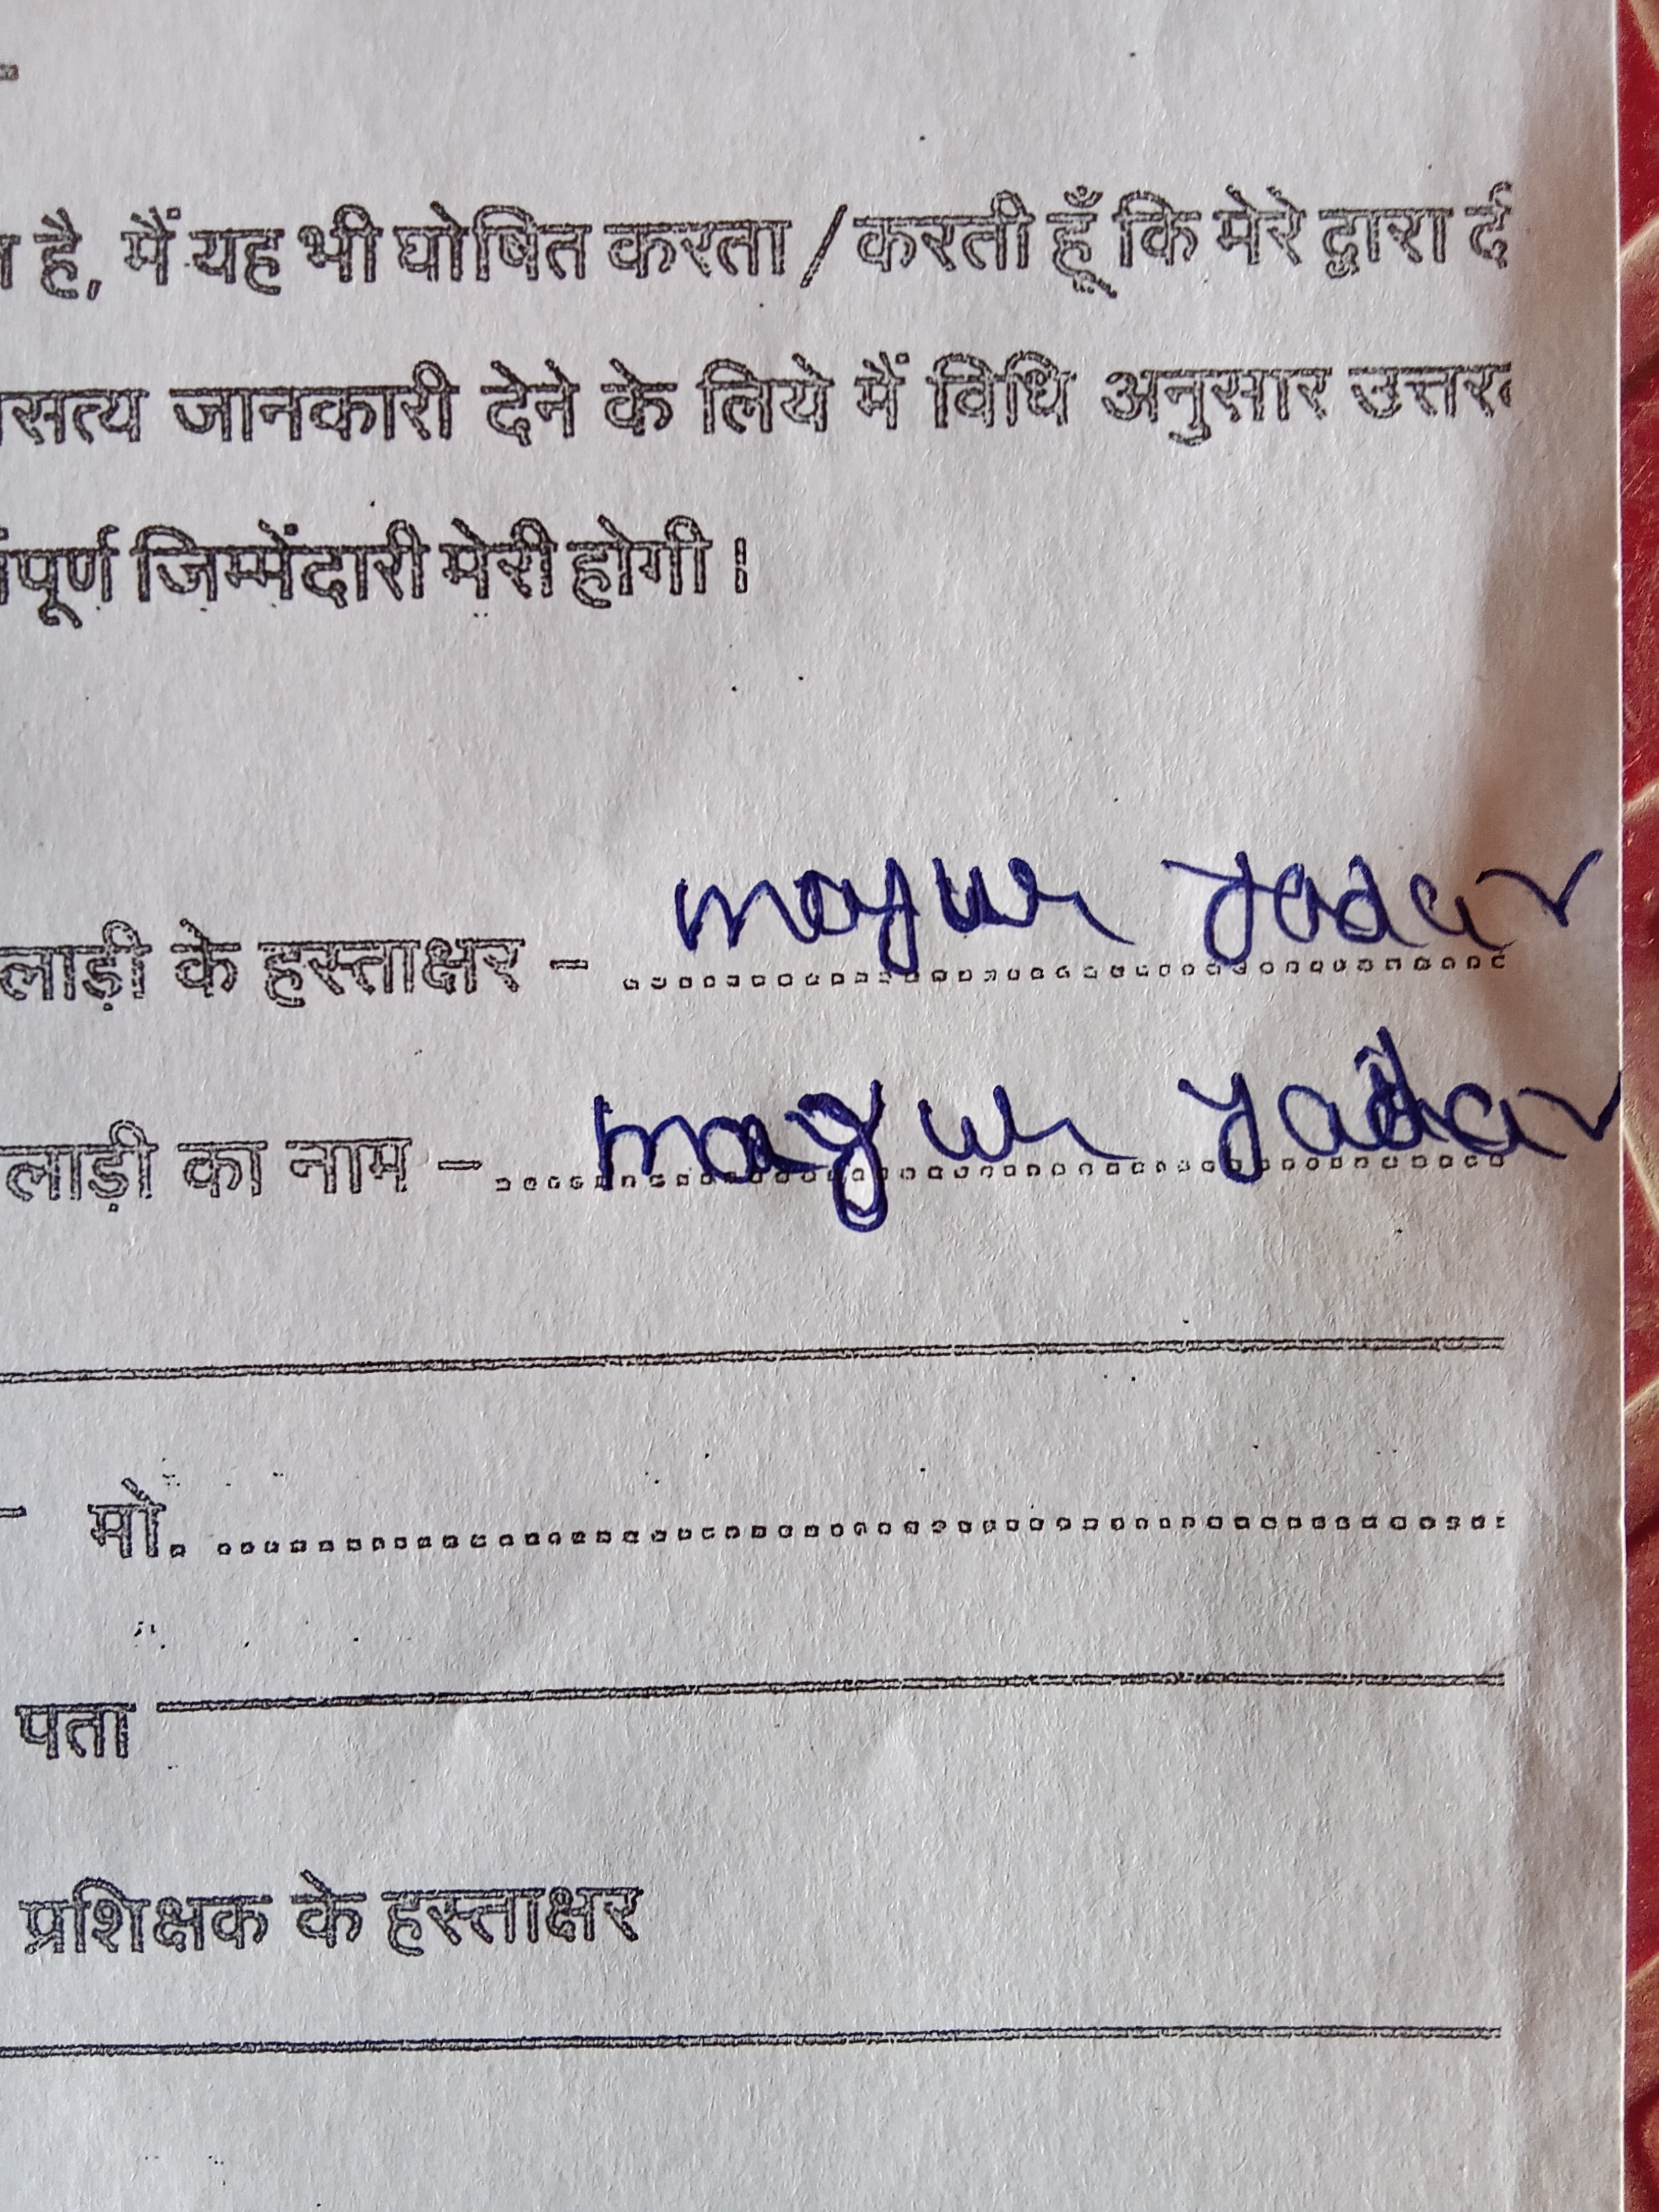 है, मैं यह भी घोषित करता / करती हूँ कि मेरे द्वारा
सत्य जानकारी देने के लिये मैं विधि अनुसार
पूर्ण जिम्मेंदारी मेरी होगी।
लाड़ी के हस्ताक्षर - mayur yadav
लाड़ी का नाम - mayur yadav
मो.
पता
प्रशिक्षक के हस्ताक्षर